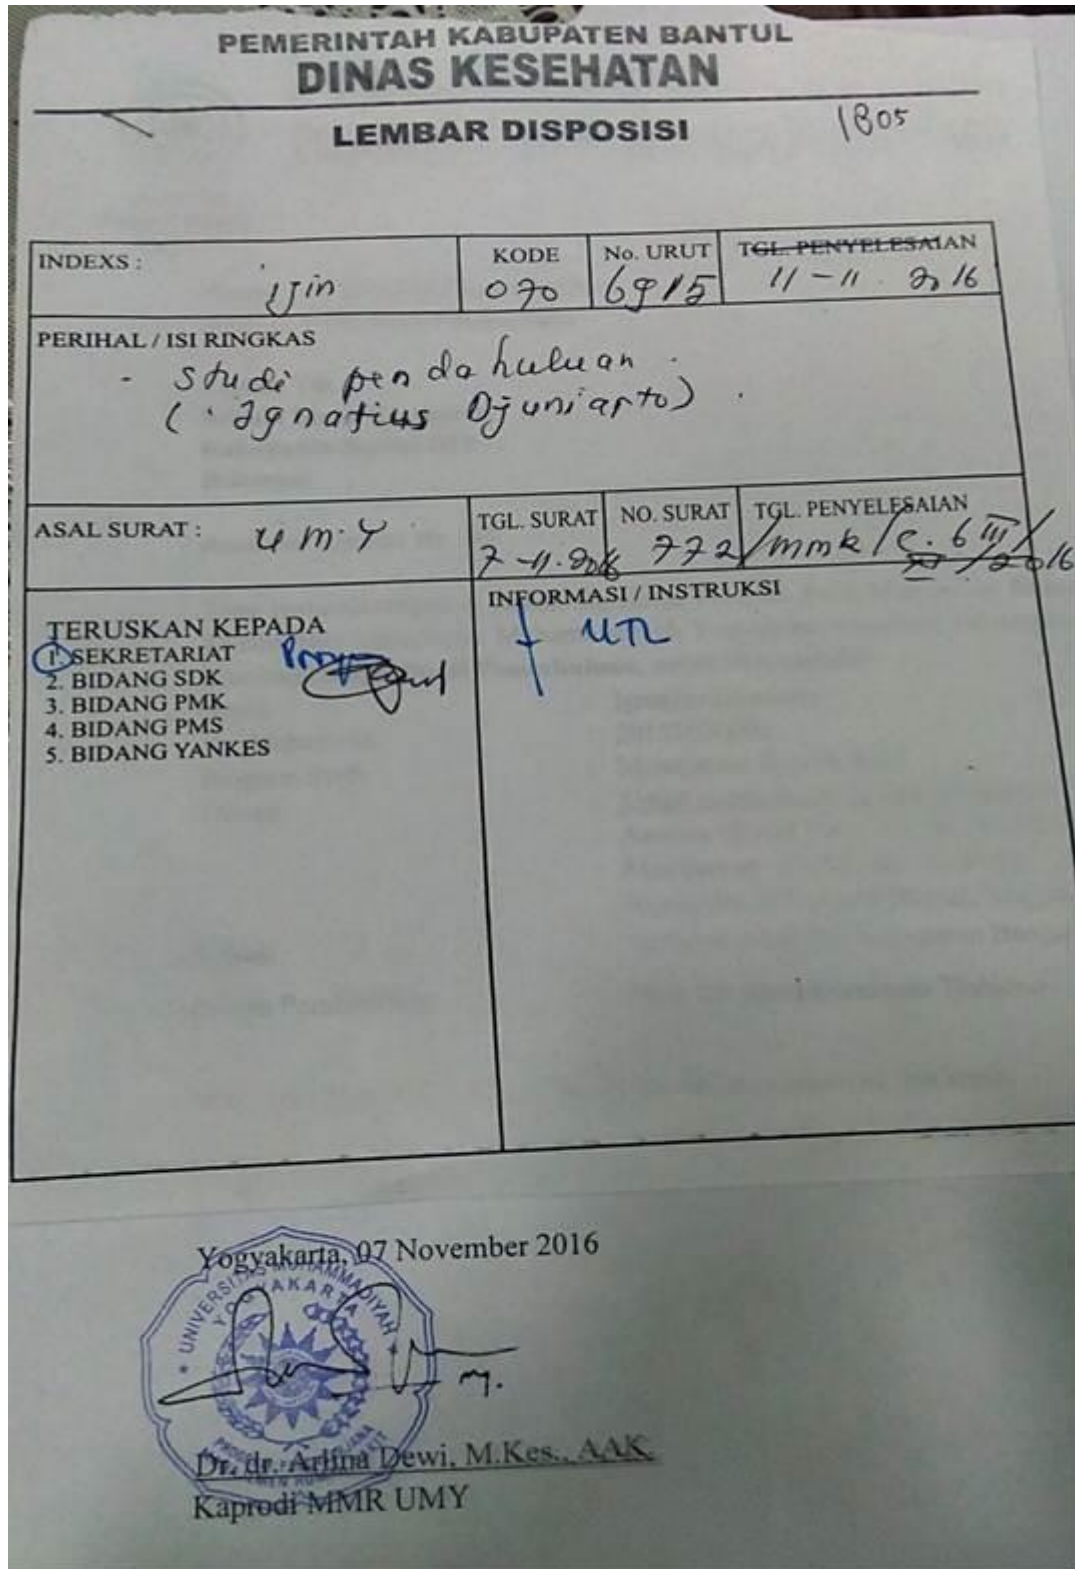 PEMERINTAH KABUPATEN BANTUL
DINAS KESEHATAN
LEMBAR DISPOSISI
1805
INDEXS :
Ijin
KODE
070
No. URUT
6915
TGL. PENYELESAIAN
11-11. 2016
PERIHAL / ISI RINGKAS
- Studi pendahuluan.
(Ignatius Djuniarto).
ASAL SURAT :
UM.Y
TGL. SURAT
7-11-2016
NO. SURAT
TGL. PENYELESAIAN
772/mmk/C. 6 III/
/2016
TERUSKAN KEPADA
1. SEKRETARIAT
2. BIDANG SDK
3. BIDANG PMK
4. BIDANG PMS
5. BIDANG YANKES
INFORMASI / INSTRUKSI
UTL
Yogyakarta, 07 November 2016
UNIVERSITAS MUHAMMADIYAH
YOGYAKARTA
Dr. dr. Arlina Dewi, M.Kes., AAK.
Kaprodi MMR UMY